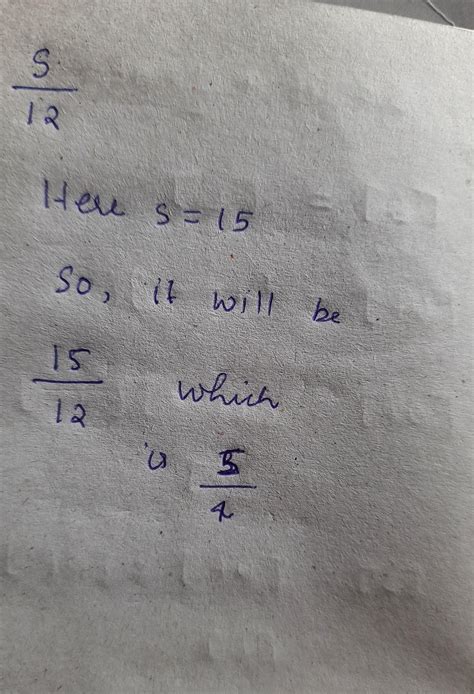 S
12
Here s = 15
So, it will be
15
12 which
is 5
4